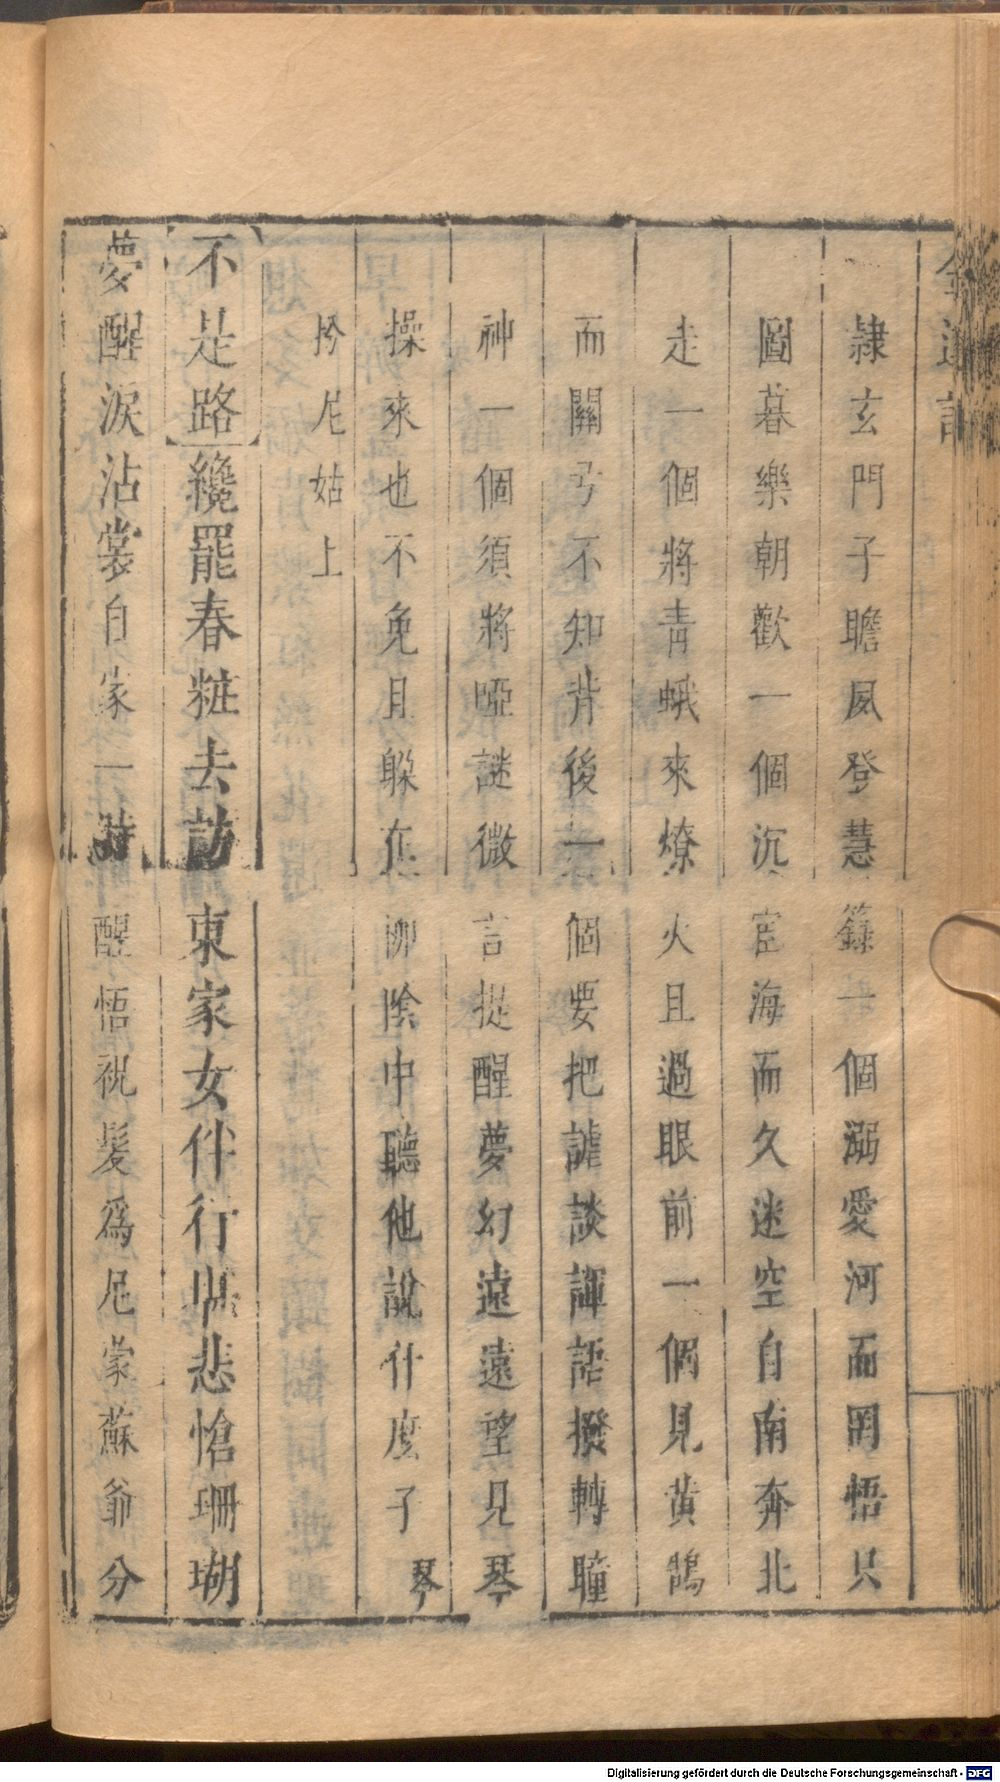 隸玄門子瞻夙登慧籙一個溺愛河而罔悟只
圖暮樂朝歡一個沉宦海而久迷空自南奔北
走一個將青蛾來燎火且過眼前一個見黃鵠
而關弓不知背後一個要把謔談諢語撥轉瞳
神一個須將啞謎微言提醒夢幻遠遠望見琴
操來也不免且躲在柳陰中聽他說什麼子琴
扵尼姑上
不是路纔罷春粧去訪東家女伴行堪悲愴珊瑚
夢醒淚沾裳自家一時醒悟祝髮爲尼蒙蘇爺分
Digitalisierung gefördert durch die Deutsche Forschungsgemeinschaft - DFG